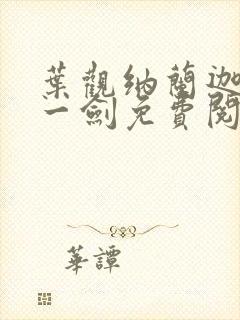 葉觀納蘭迦
一劍免費閱
華譚